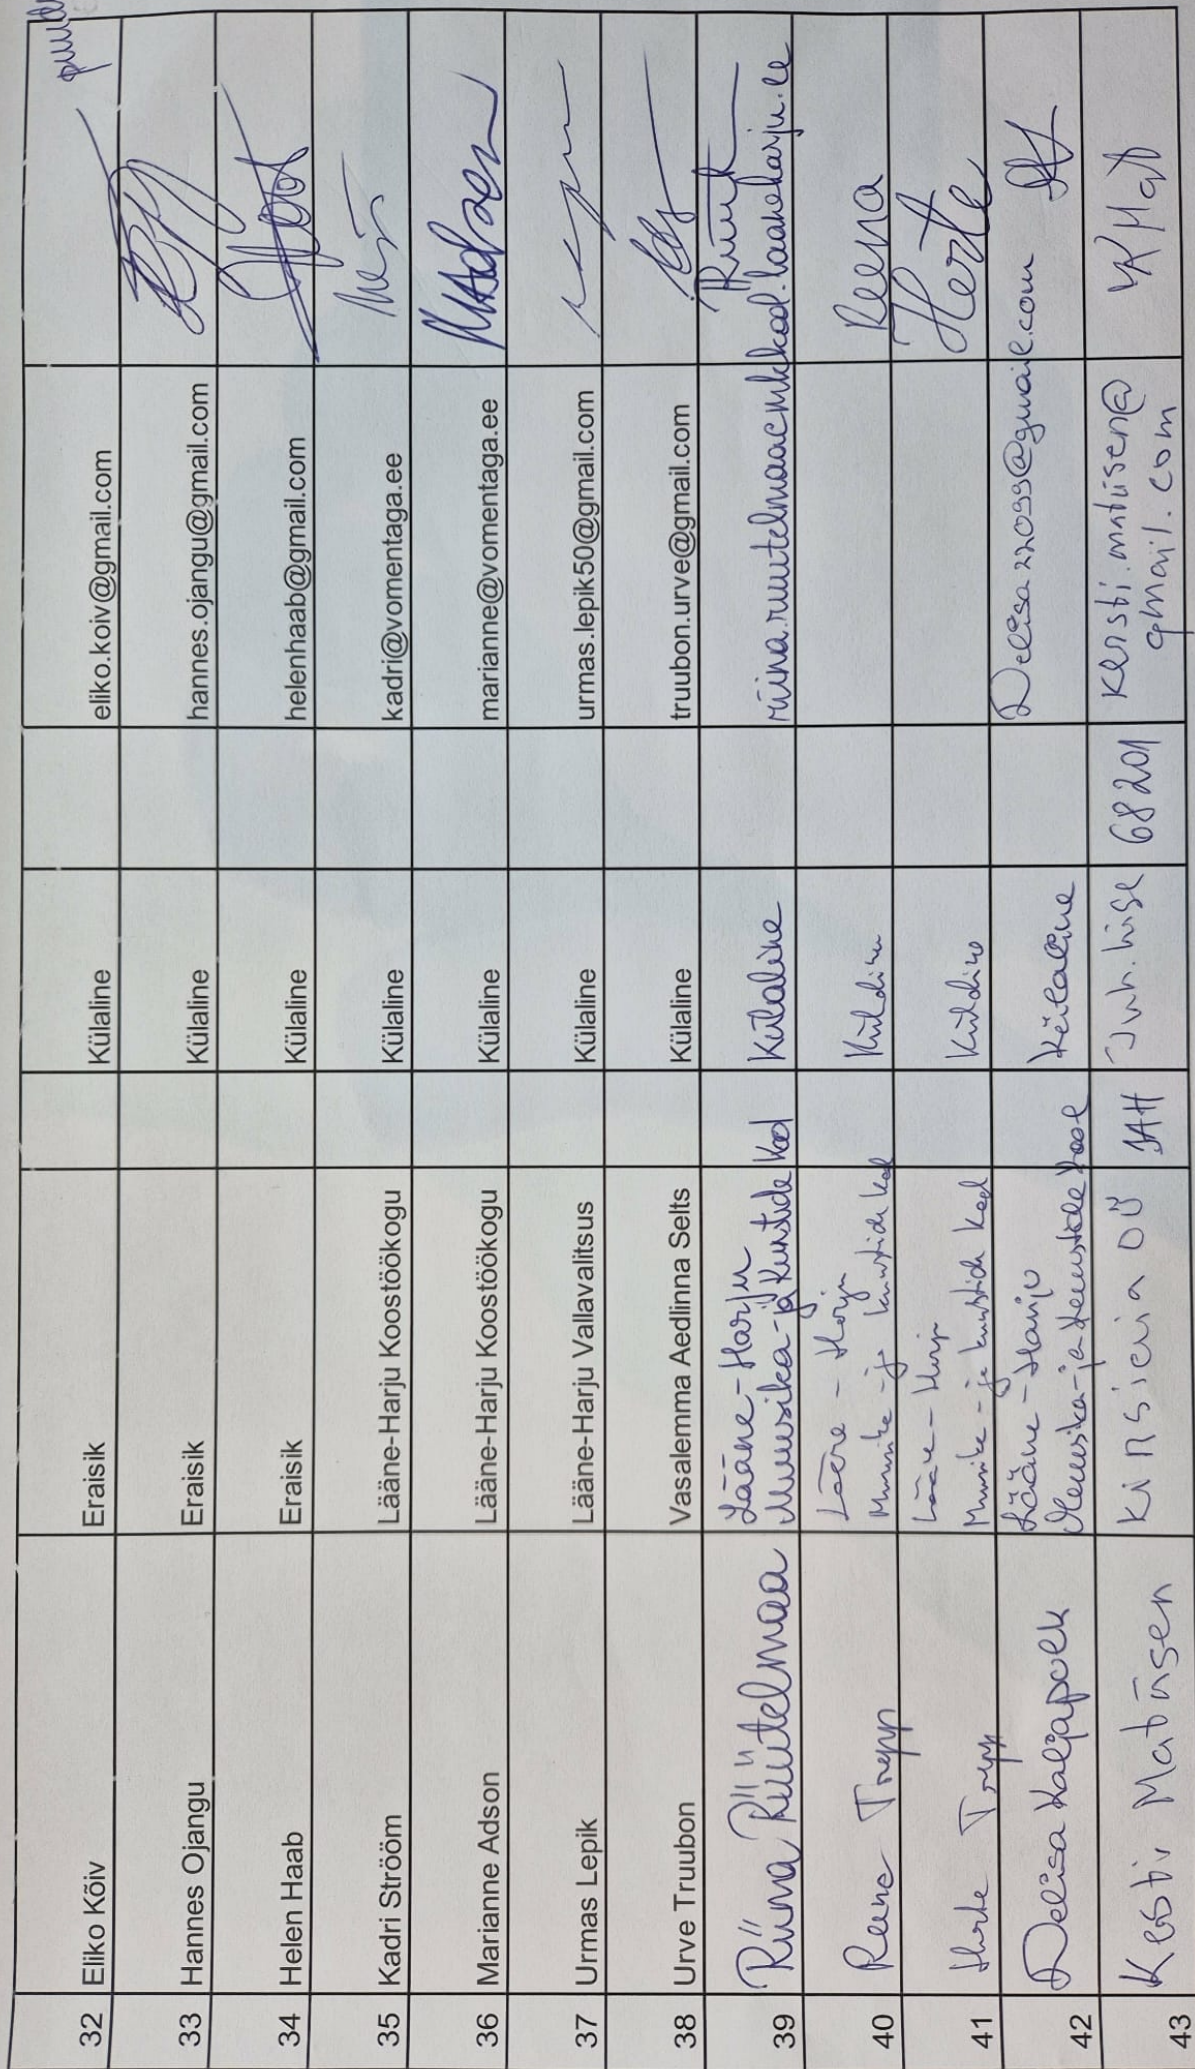 puudu
32 Eliko Kõiv Eraisik Külaline eliko.koiv@gmail.com
33 Hannes Ojangu Eraisik Külaline hannes.ojangu@gmail.com
34 Helen Haab Eraisik Külaline helenhaab@gmail.com
35 Kadri Strööm Lääne-Harju Koostöökogu Külaline kadri@vomentaga.ee
36 Marianne Adson Lääne-Harju Koostöökogu Külaline marianne@vomentaga.ee MAdson
37 Urmas Lepik Lääne-Harju Vallavalitsus Külaline urmas.lepik50@gmail.com
38 Urve Truubon Vasalemma Aedlinna Selts Külaline truubon.urve@gmail.com
39 Riina Rüütelmaa Lääne-Harju
Muusika- ja Kunstide Kool Külaline
40 Trepp Lääne-Harju
Muusika- ja kunstide kool Reena
41 Herte Trepp Lääne-Harju
Muusika- ja kunstide kool Herte
42 Delisa Kaljapolk Lääne-Harju
Muusika- ja Kunstide kool Külaline Delisa22099@gmail.com
43 Kersti Matiisen Kinsiria OÜ JAH Juh. liige 68201 kersti.matiisen@
gmail.com